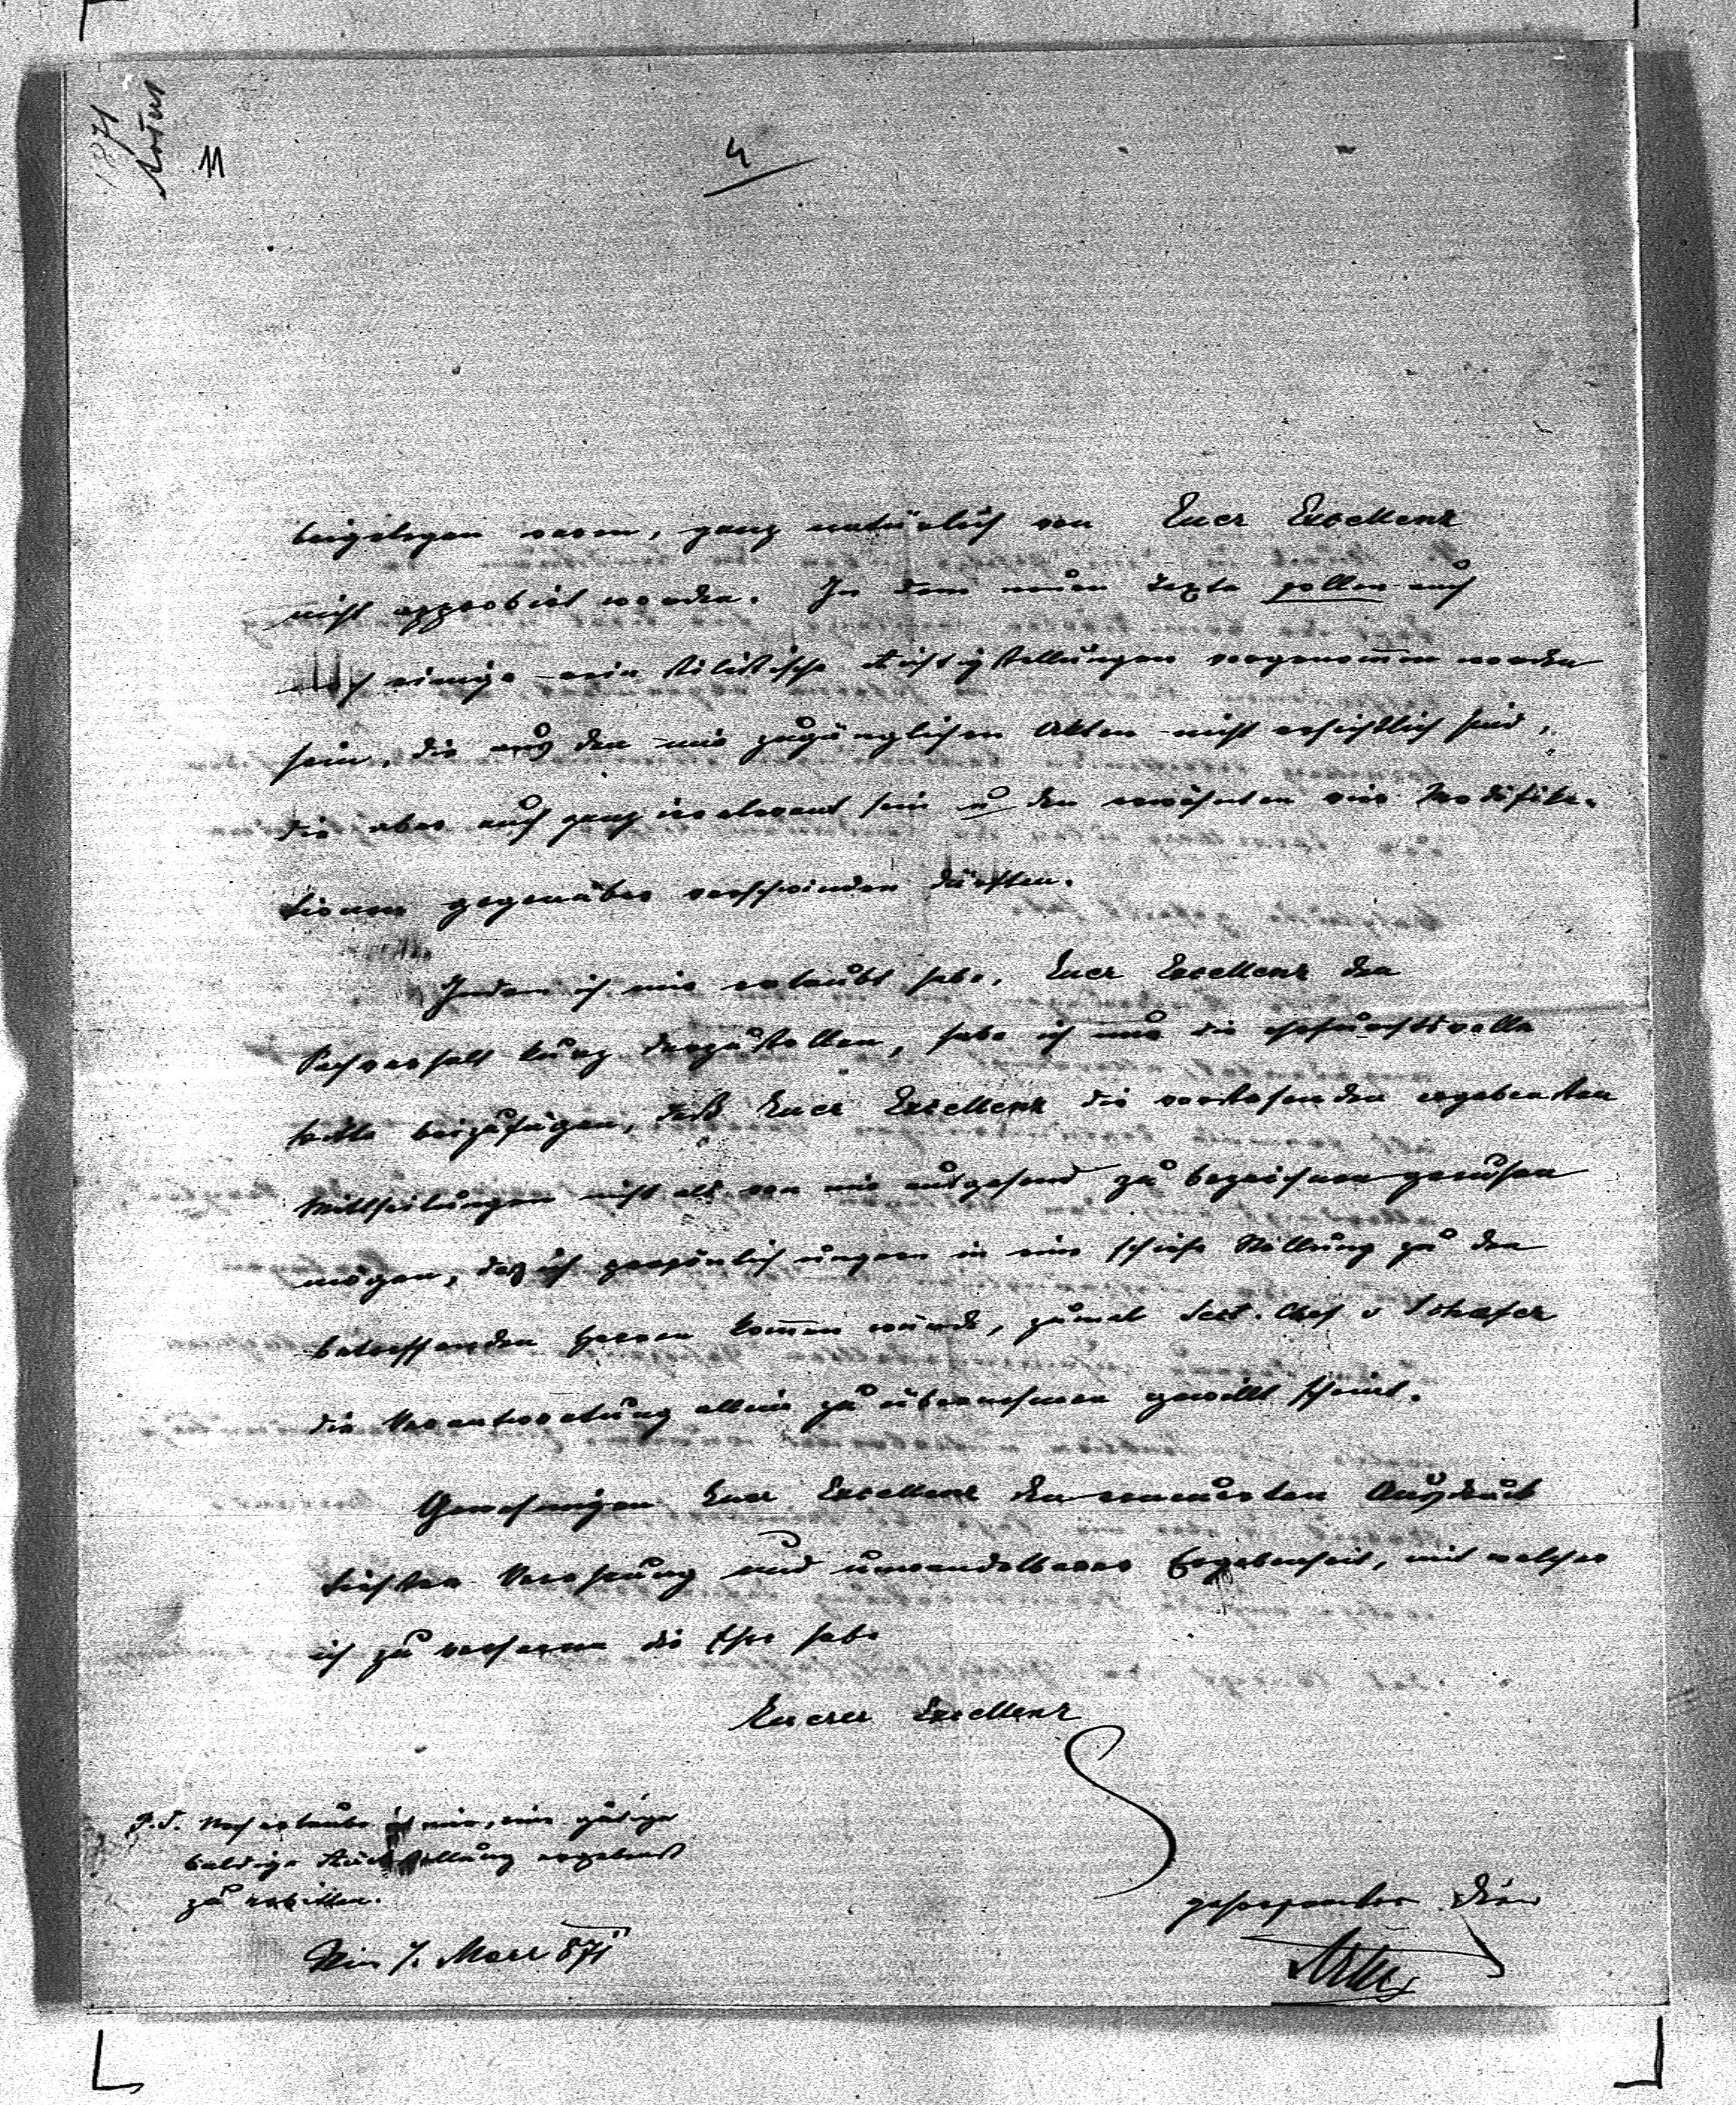 1871
11
4
beigelegen waren, ganz natürlich von Euer Excellenz
nicht approbirt worden. In dem neuen Texte sollen auch
noch einige rein stilistische Richtigstellungen vorgenommen worden
sein, die aus den mir zugänglichen Akten nicht ersichtlich sind,
die aber auch ganz irrelevant sein u den erwähnten vier Modifika-
tionen gegenüber verschwinden dürften.
Indem ich mir erlaubt habe, Euer Excellenz den
Sachverhalt kurz darzustellen, habe ich nur die ehrfurchtsvolle
Bitte beizufügen, daß Euer Excellenz die vorstehenden ergebensten
Mittheilungen nicht als von mir ausgehend zu bezeichnen geruhen
mögen, da ich persönlich ungern in eine schiefe Stellung zu den
betreffenden Herren kommen würde, zumal Sect. Chef v Schaefer
die Verantwortung allein zu übernehmen gewillt scheint.
Genehmigen Euer Excellenz den erneuerten Ausdruck
tiefster Verehrung und unwandelbarer Ergebenheit, mit welcher
ich zu verharren die Ehre habe
Euerer Excellenz
P.S. Noch erlaube ich mir, eine gütige
baldige Rückstellung ergebenst
zu erbitten.
gehorsamster Diener
Wien 7. März 871